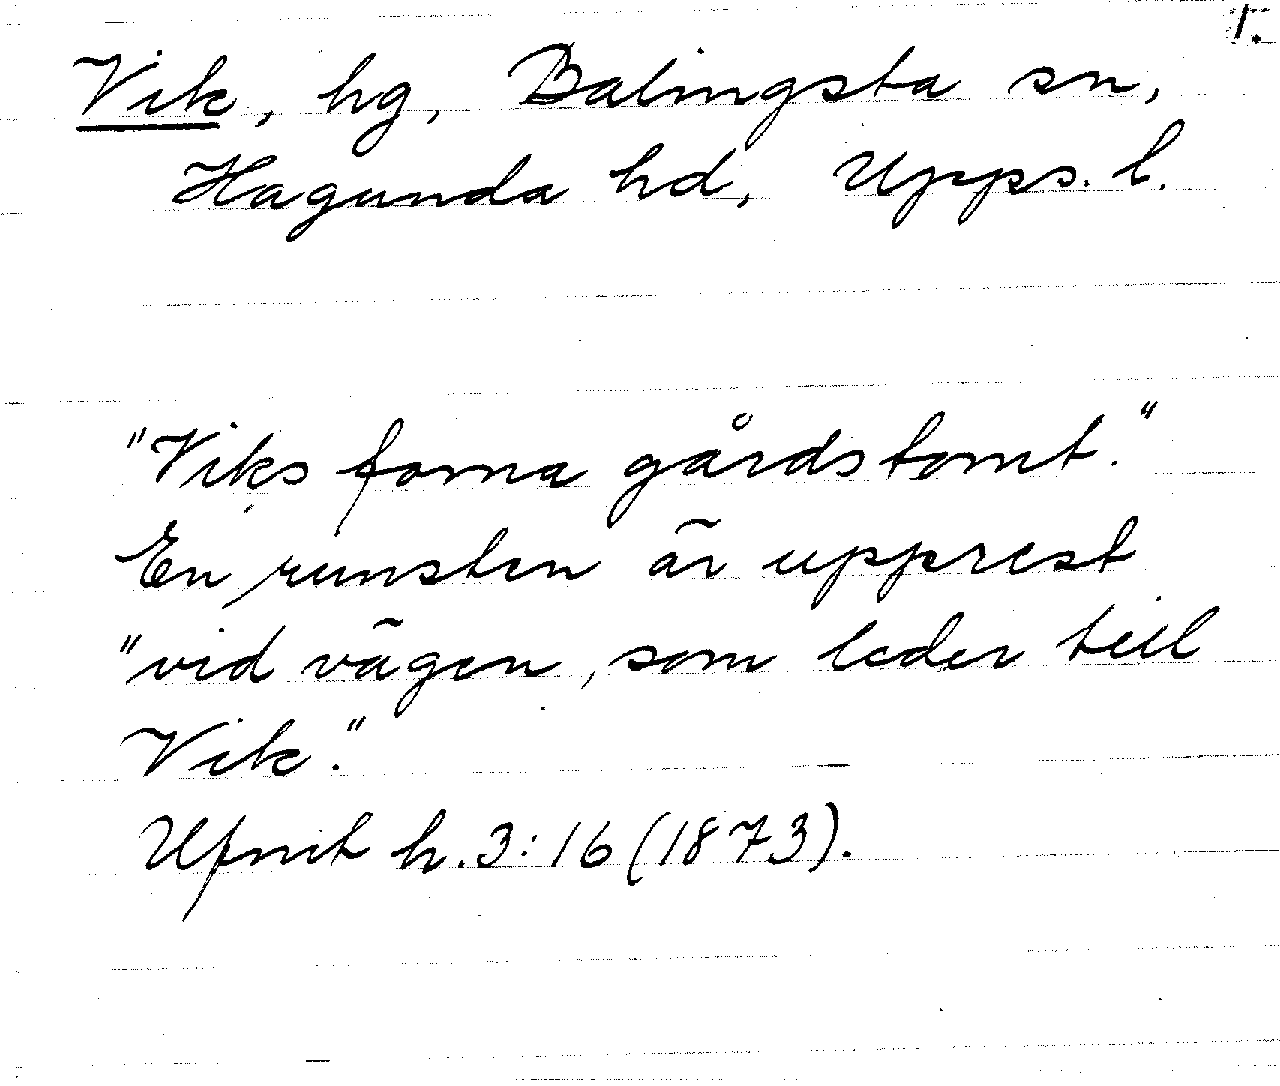 T.
Vik, hg, Balingsta sn,
Hagunda hd, Upps. l.
"Viks forna gårdstomt."
En runsten är upprest
"vid vägen, som leder till
Vik."
Ufmt h. 3:16 (1873).